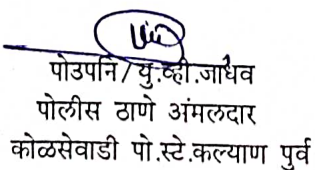 पोउपनि/यु.व्ही.जाधव
पोलीस ठाणे अंमलदार
कोळसेवाडी पो.स्टे.कल्याण पुर्व